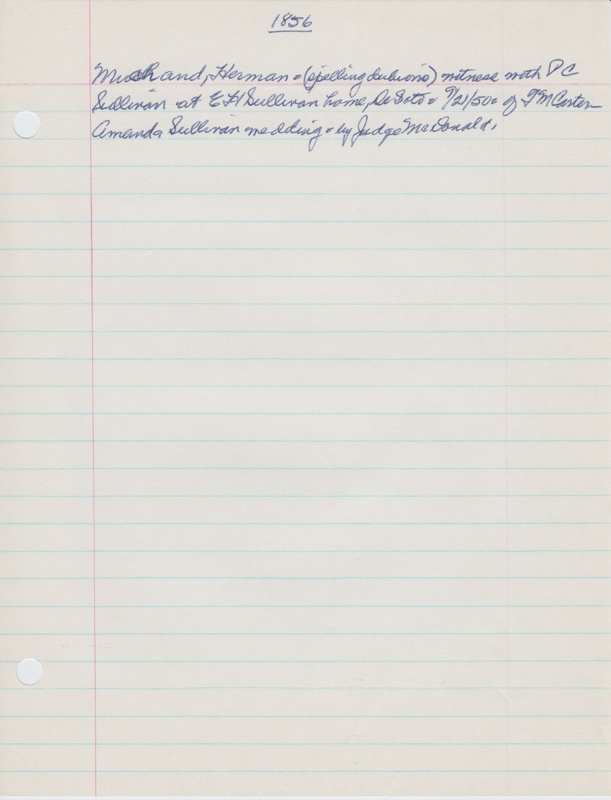 1856
Herman - (spelling dubious) witness with DC
Sullivan at E H Sullivan home, De Soto - 9/21/50 - of T M Carter
Amanda Sullivan wedding - by Judge McDonald.